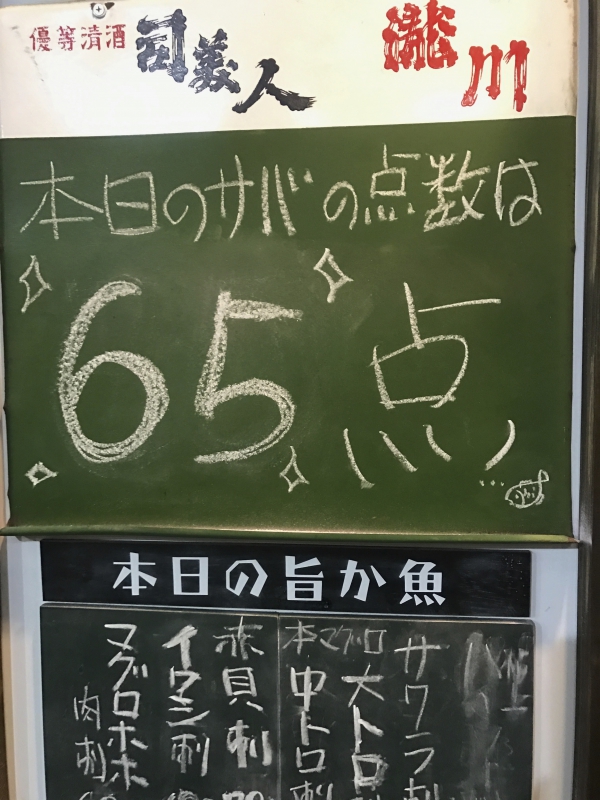 優等清酒
司美人
瀧川
本日のサバの点数は
65点
本日の旨か魚
サクラ刺
本マグロ
大トロ
中トロ刺
赤貝刺
イワシ刺
マグロホホ
肉刺